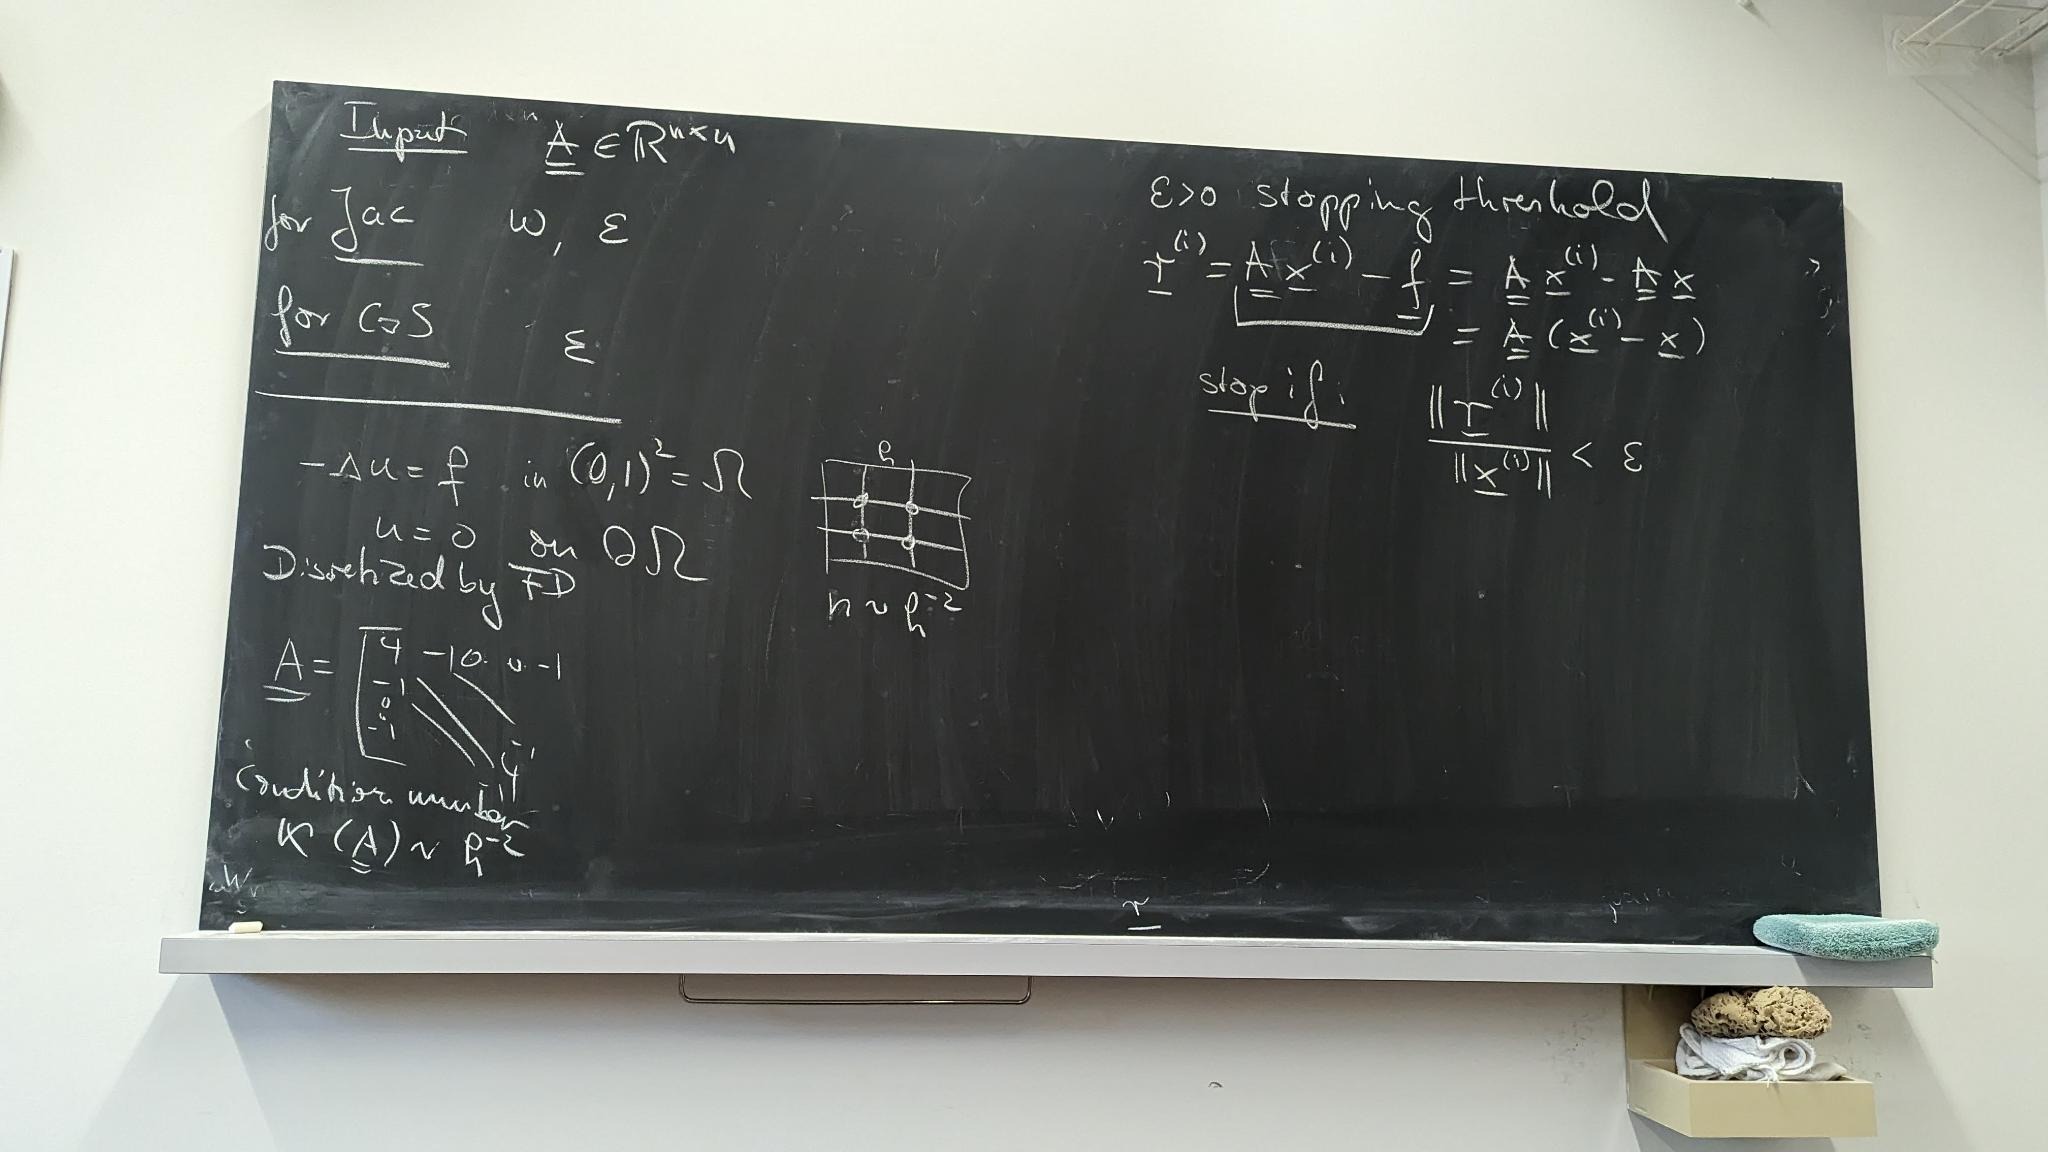 Input A ∈ ℝⁿˣⁿ
for Jac ω, ε
for GS ε
-Δu = f in (0,1)² = Ω
u = 0 on ∂Ω
Discretized by FD
h
n ~ h⁻²
A = [4 -1 0 . 0 . -1
-1
0
-1
-1
4
-1
Condition number
κ(A) ~ h⁻²
ε>0 stopping threshold
r⁽ⁱ⁾ = A x⁽ⁱ⁾ - f = A x⁽ⁱ⁾ - A x
= A (x⁽ⁱ⁾ - x)
stop if: ||r⁽ⁱ⁾|| / ||x⁽ⁱ⁾|| < ε
r